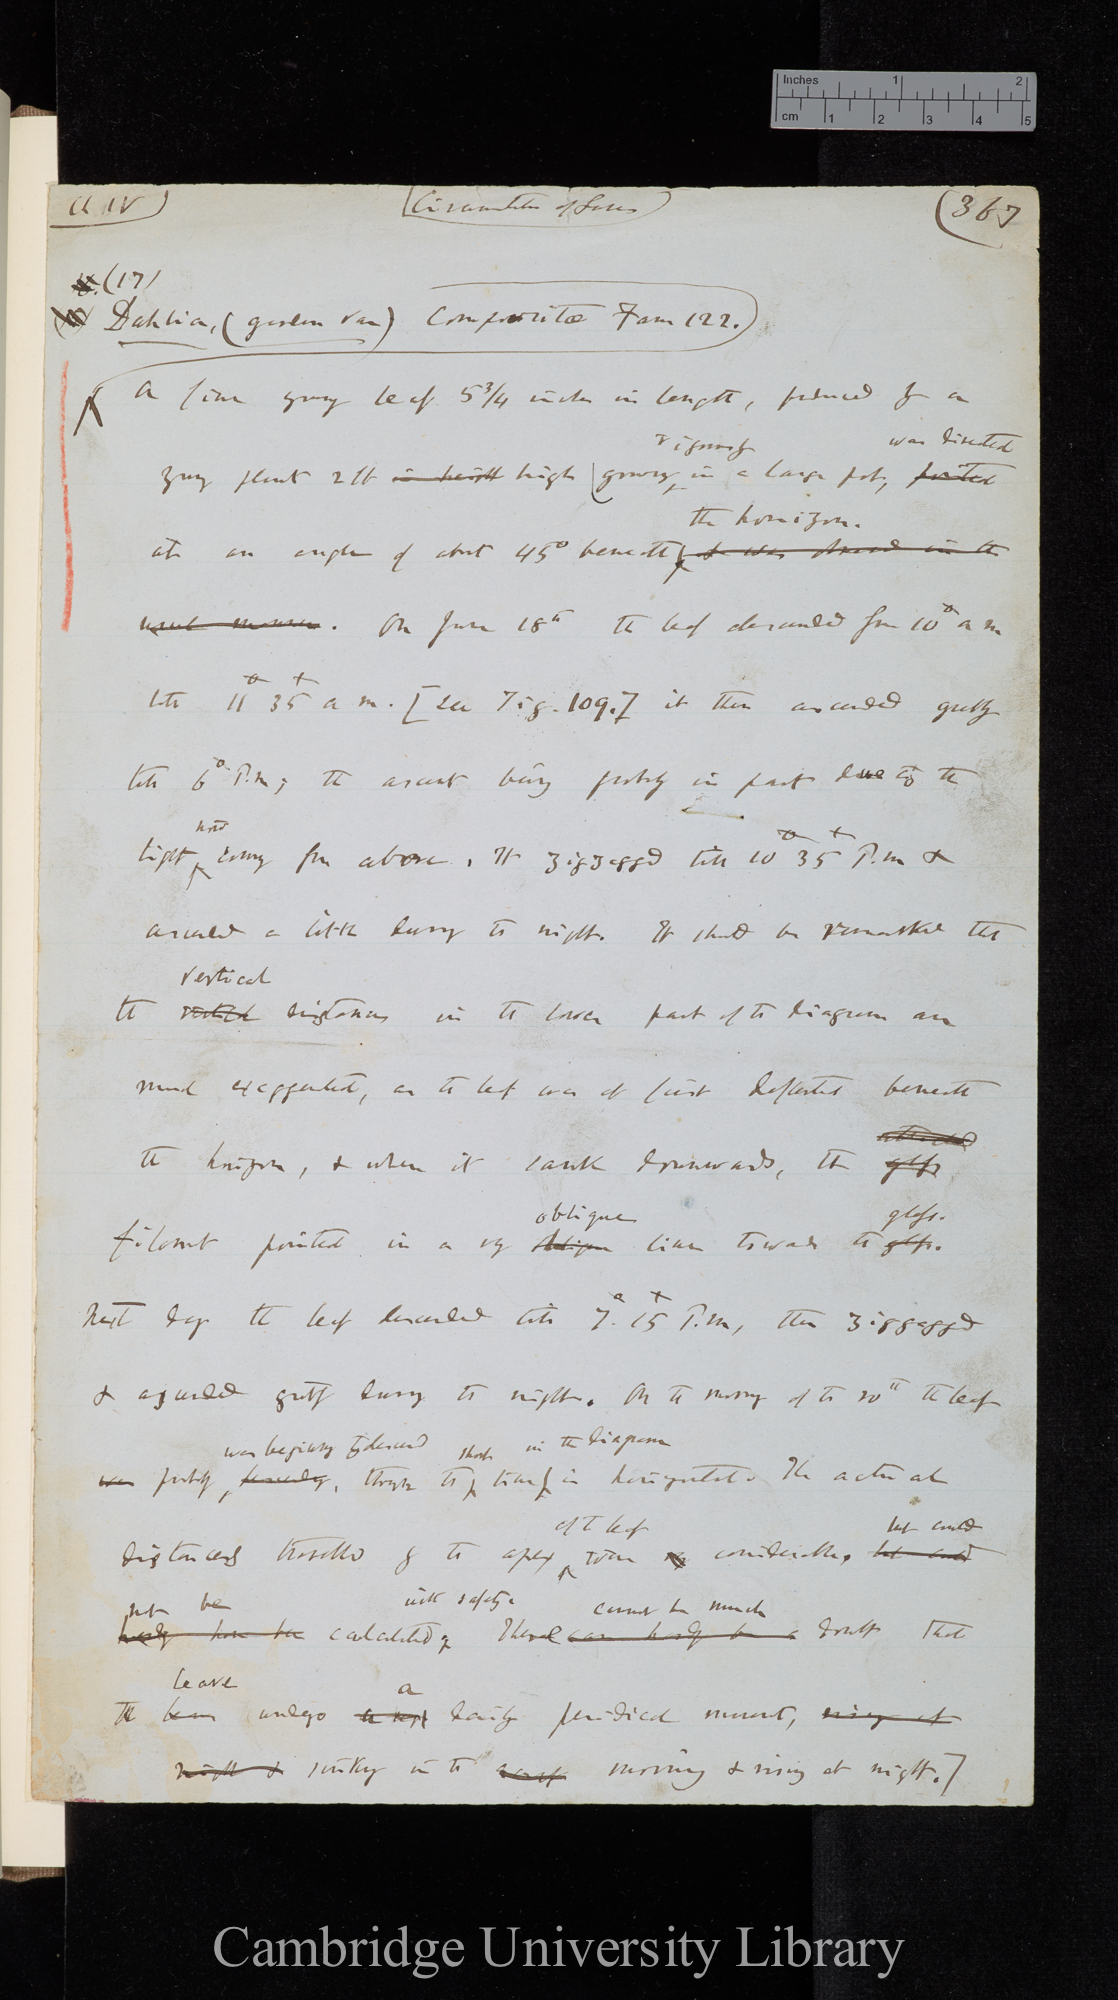 Inches 1 2
cm 1 2 3 4 5
Ch IV)
Circumnutation of Leaves
(367
(17)
Dahlia, (garden var) Compositæ Fam 122.)
A fine young leaf 5 3/4 inches in length, produced by a
vigorously was directed
young plant 2 ft in height high (growing in a large pot, pointed
the horizon.
at an angle of about 45° beneath & was observed in the
usual manner. On June 18th the leaf descended from 10° a m
till 11° 35' a m. [see Fig. 109.] it then ascended greatly
till 6° P.m; the ascent being probably in part due to the
now
light coming from above. It zigzagged till 10° 35' P.m &
ascended a little during the night. It should be remarked that
vertical
the vertical distances in the lower part of the diagram are
much exaggerated, as the leaf was at first deflected beneath
attached
the horizon, & when it sank downwards, the glass
oblique glass.
filament pointed in a very oblique line towards the glass.
Next day the leaf descended till 7° 15' P.m, then zigzagged
& ascended greatly during the night. On the morning of the 20th the leaf
was beginning to descend short in the diagram
was probably descending, though the line is horizontal. The actual
of the leaf but could
distances travelled by the apex were considerable, but could
not be with safety. cannot be much
hardly have been calculated There can hardly be a doubt that
leave a
the undergo daily periodical movement, rising at
night & sinking in the morning & rising at night.]
Cambridge University Library